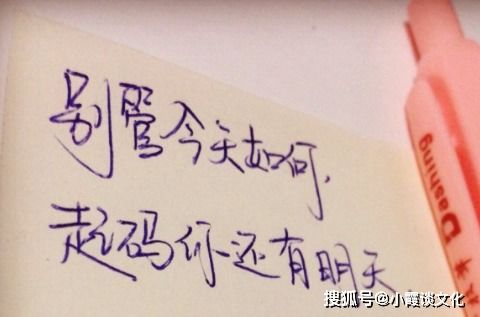 别管今天如何，
起码你还有明天
Dashing
搜狐号@小霞谈文化